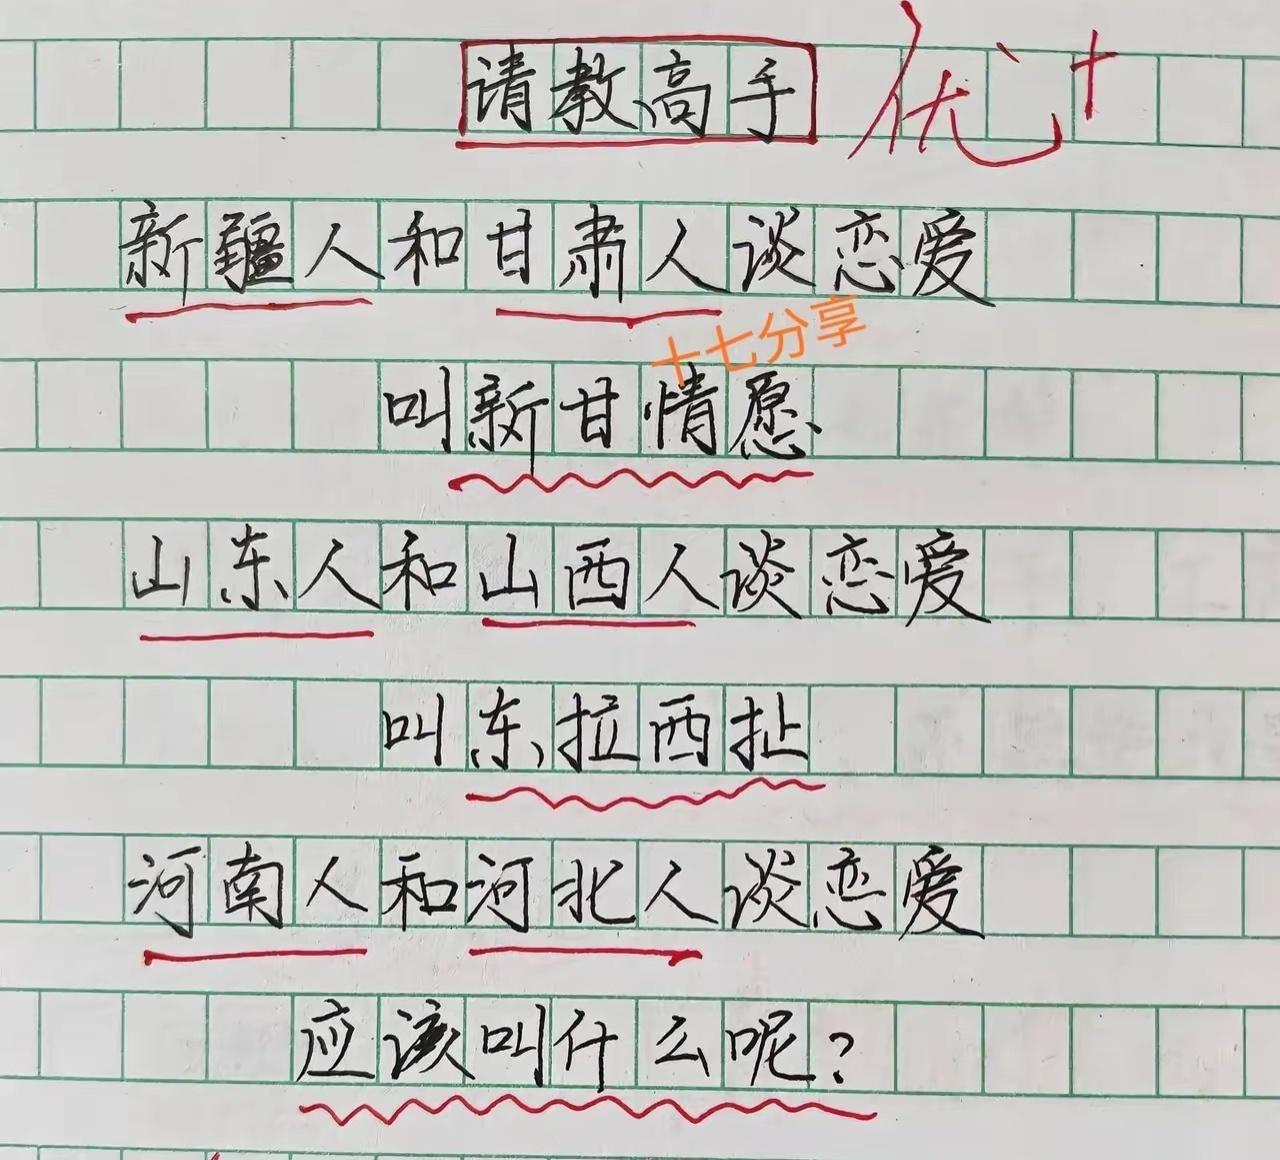 请教高手 优+
新疆人和甘肃人谈恋爱
十七分享
叫新甘情愿
山东人和山西人谈恋爱
叫东拉西扯
河南人和河北人谈恋爱
应该叫什么呢？